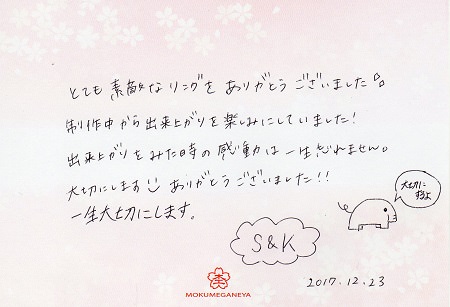 とても素敵なリングをありがとうございました。
制作中から出来上がりを楽しみにしていました!
出来上がりをみた時の感動は一生忘れません。
大切にします ありがとうございました!!
一生大切にします。
大切に
するよ
S&K
2017.12.23
MOKUMEGANEYA